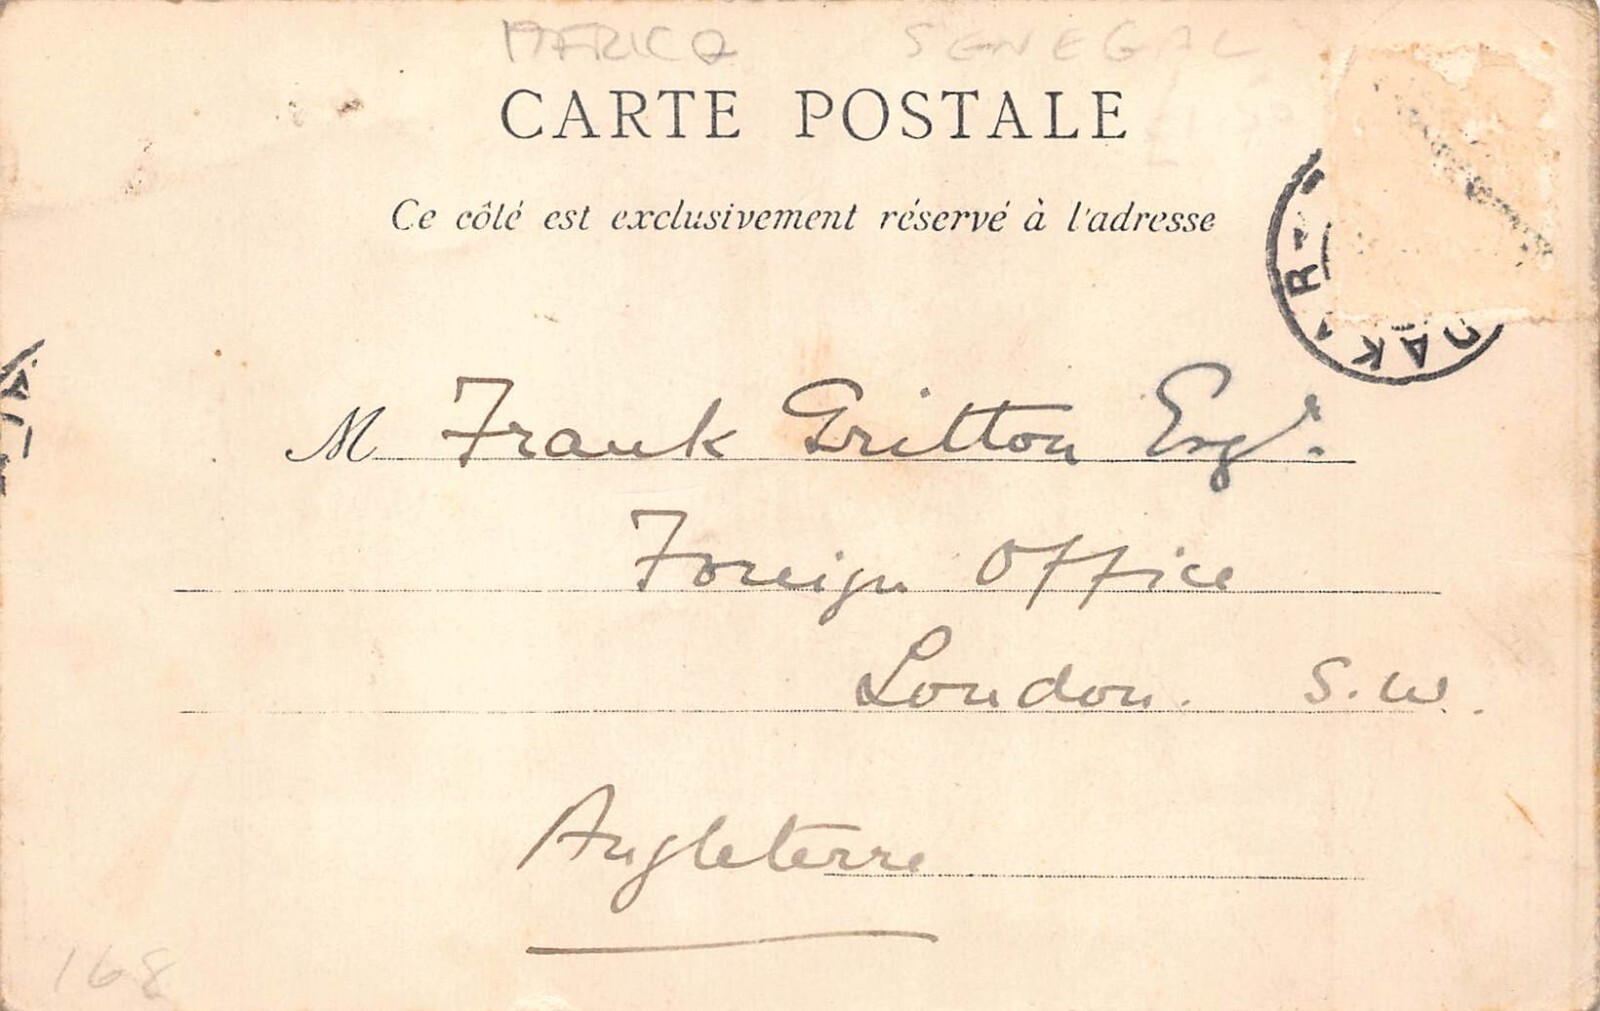 AFRICA SENEGAL
CARTE POSTALE
Ce côté est exclusivement réservé à l'adresse
DAKAR
M Frank Gritton Esqr.
Foreign Office
London. S.W.
Angleterre
168